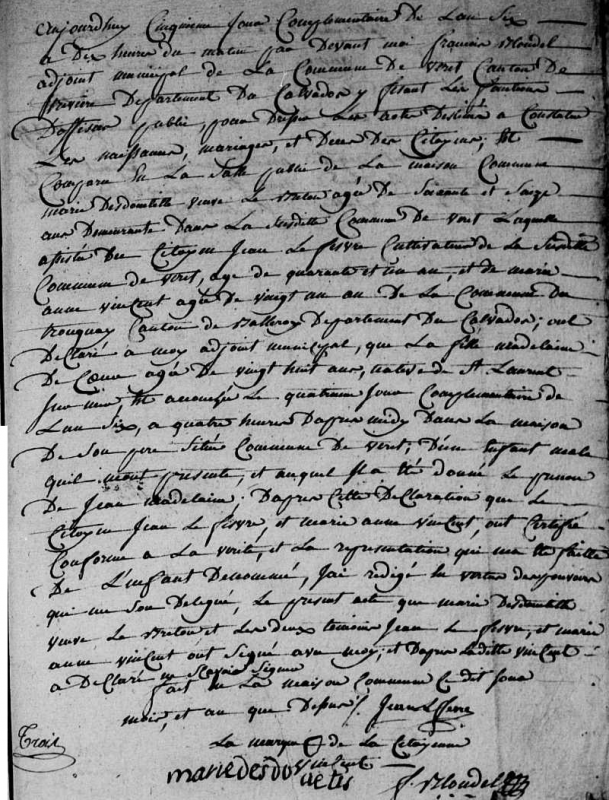 aujourdhuy Cinquieme Jour Complementaire De Lan Six
a Dix heures du matin par Devant moi françois Blondel
adjoint municipal de La Commune de veret Canton De
Departement Du Calvados y fesant Les fonctions
Dofficier public, pour Dresser Les acte Destiné a Constater
Les naissances, mariages, et Deces Des Citoyens; Est
Comparu En La Salle public de La maison Commune
marie veuve Le Breton agée De Soixante et Seize
ans Demeurante Dans La Susditte Commune De veret Laquelle
assistée Du Citoyen Jean Le fevre Cultivateur de La Susditte
Commune de veret, age de quarante et un an, et de marie
anne vincent agée De vingt un an De La Commune Du
tronquay Canton de Balleroy Departement Du Calvados; ont
Declaré a moy adjoint municipal, que La fille madelaine
De agée De vingt huit ans, native de St Laurent
Sur mer Est accouchée Le quatrieme Jour Complementaire de
Lan Six, a quatre heures Dapres midy Dans La maison
De Son pere Sitüé Commune De veret; D'un Enfant male
quil mont presenté, et auquel Il a Eté donné Le prenom
De Jean madelaine. Dapres Cette Declaration que Le
Citoyen Jean Le fevre, et marie anne vincent, ont Certifié
Conforme a La verité, et La representation qui ma Eté faitte
De L'enfant Denommé, J'ai redigé En vertue des pouvoirs
qui me Son Delegué, Le present acte que marie
veuve Le Breton et Les deux temoins Jean Le fevre, et marie
anne vincent ont Signé avec moy, et Dapres Laditte vincent
a Declaré ne Scavoir Signer
fait En La maison Commune Ce dit Jour
mois, et an que Dessus /. Jean Le fevre
Trois
La marque de La Citoyenne
vincent
f. Blondel